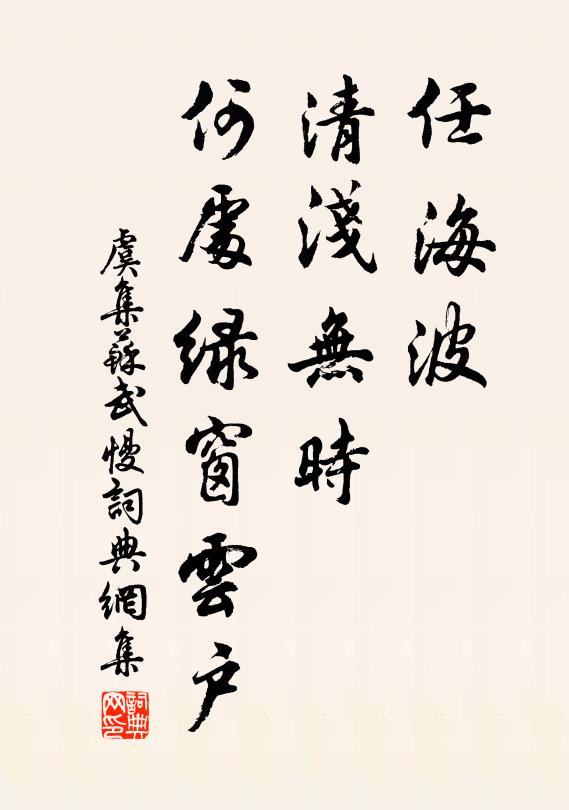 任海波
清淺無時
何處綠窗雲户
虞集蘇武慢詞典網集
詞典
网印